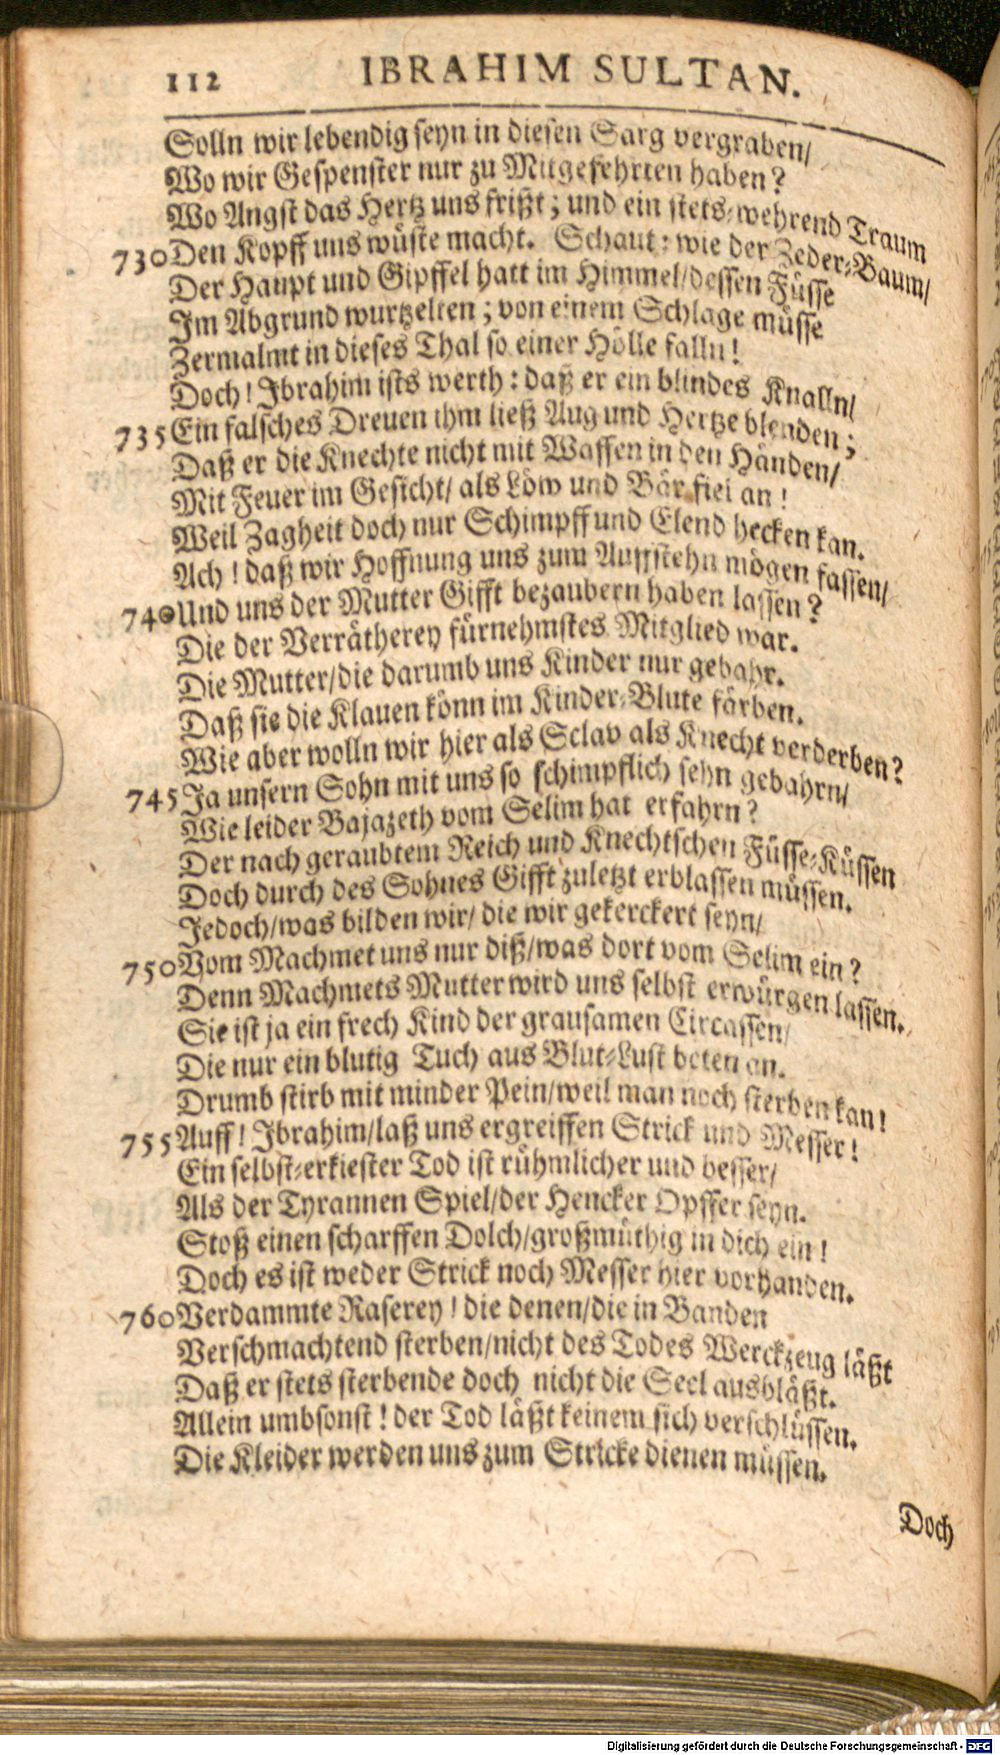 112 IBRAHIM SULTAN.
Solln wir lebendig seyn in diesen Sarg vergraben/
Wo wir Gespenster nur zu Mitgefehrten haben?
Wo Angst das Hertz uns frißt; und ein stets-wehrend Traum
730 Den Kopff uns wüste macht. Schaut: wie der Zeder-Baum/
Der Haupt und Gipffel hatt im Himmel/dessen Füsse
Im Abgrund wurtzelten; von einem Schlage müsse
Zermalmt in dieses Thal so einer Hölle falln!
Doch! Ibrahim ists werth: daß er ein blindes Knalln/
735 Ein falsches Dreuen ihm ließ Aug und Hertze blenden;
Daß er die Knechte nicht mit Waffen in den Händen/
Mit Feuer im Gesicht/ als Löw und Bär fiel an!
Weil Zagheit doch nur Schimpff und Elend hecken kan.
Ach! daß wir Hoffnung uns zum Auffstehn mögen fassen/
740 Und uns der Mutter Gifft bezaubern haben lassen?
Die der Verrätherey fürnehmstes Mitglied war.
Die Mutter/die darumb uns Kinder nur gebahr.
Daß sie die Klauen könn im Kinder-Blute färben.
Wie aber wolln wir hier als Sclav als Knecht verderben?
745 Ja unsern Sohn mit uns so schimpflich sehn gebahrn/
Wie leider Bajazeth vom Selim hat erfahrn?
Der nach geraubtem Reich und Knechtschen Füsse-Küssen
Doch durch des Sohnes Gifft zuletzt erblassen müssen.
Jedoch/was bilden wir/ die wir gekerckert seyn/
750 Vom Machmet uns nur diß/was dort vom Selim ein?
Denn Machmets Mutter wird uns selbst erwürgen lassen.
Sie ist ja ein frech Kind der grausamen Circassen/
Die nur ein blutig Tuch aus Blut-Lust beten an.
Drumb stirb mit minder Pein/weil man noch sterben kan!
755 Auff! Ibrahim/laß uns ergreiffen Strick und Messer!
Ein selbst-erkiester Tod ist rühmlicher und besser/
Als der Tyrannen Spiel/der Hencker Opffer seyn.
Stoß einen scharffen Dolch/großmüthig in dich ein!
Doch es ist weder Strick noch Messer hier vorhanden.
760 Verdammte Raserey! die denen/die in Banden
Verschmachtend sterben/nicht des Todes Werckzeug läßt
Daß er stets sterbende doch nicht die Seel ausbläßt.
Allein umbsonst! der Tod läßt keinem sich verschlüssen.
Die Kleider werden uns zum Stricke dienen müssen.
Doch
Digitalisierung gefördert durch die Deutsche Forschungsgemeinschaft - DFG